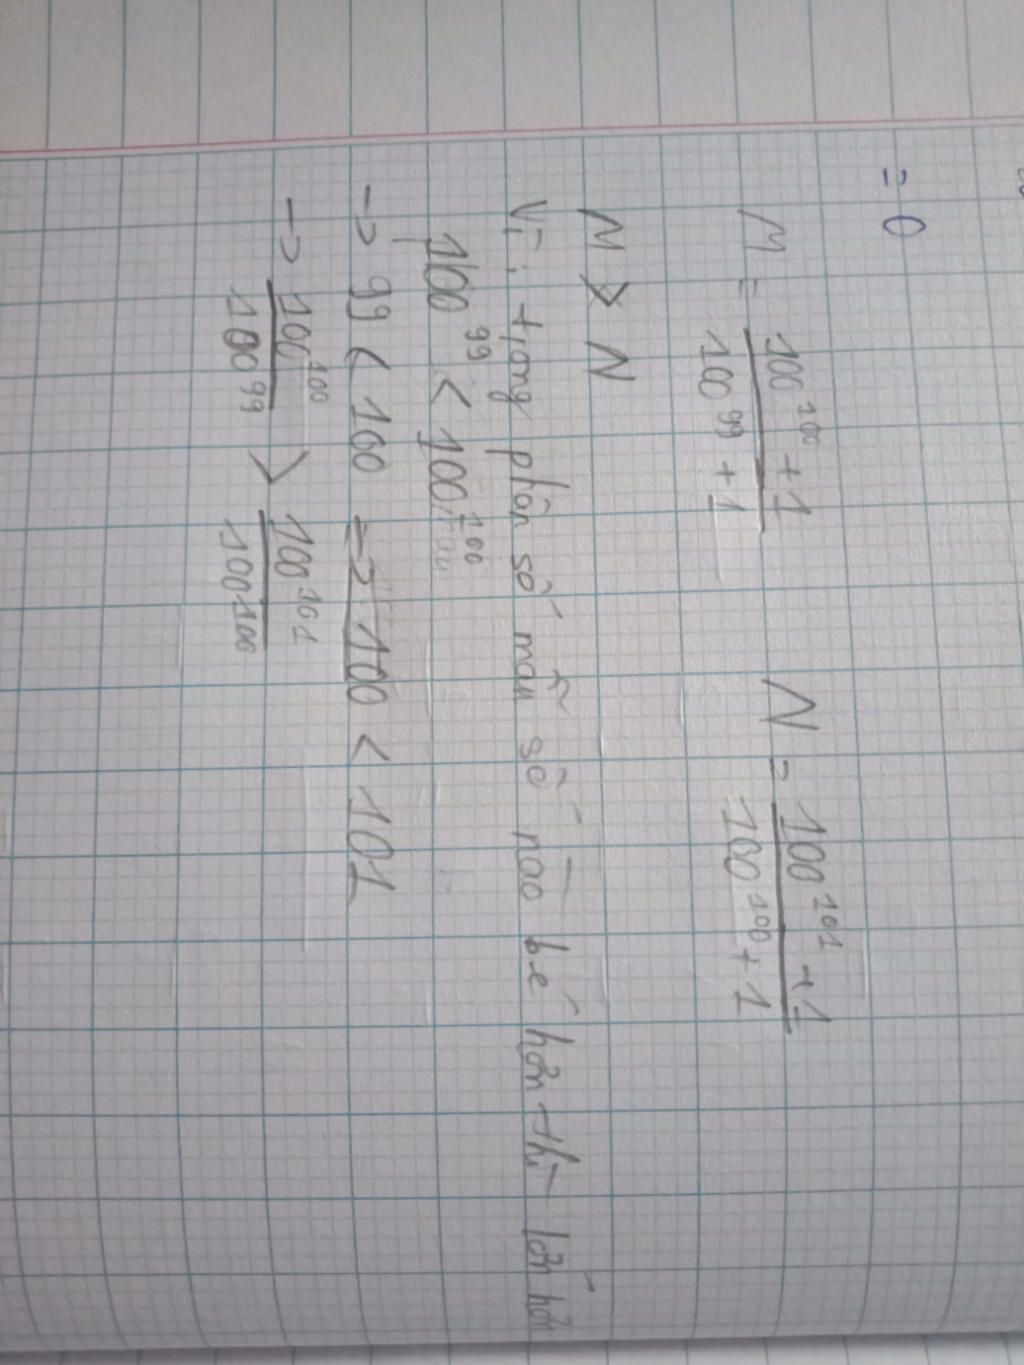 = 0
M = \frac{100^{100} + 1}{100^{99} + 1} N = \frac{100^{101} + 1}{100^{100} + 1}
M > N
Vì : trong phân số mẫu số nào bé hơn thì lớn hơn
100^{99} < 100^{100}
-> 99 < 100 => 100 < 101
-> \frac{100^{100}}{100^{99}} > \frac{100^{101}}{100^{100}}